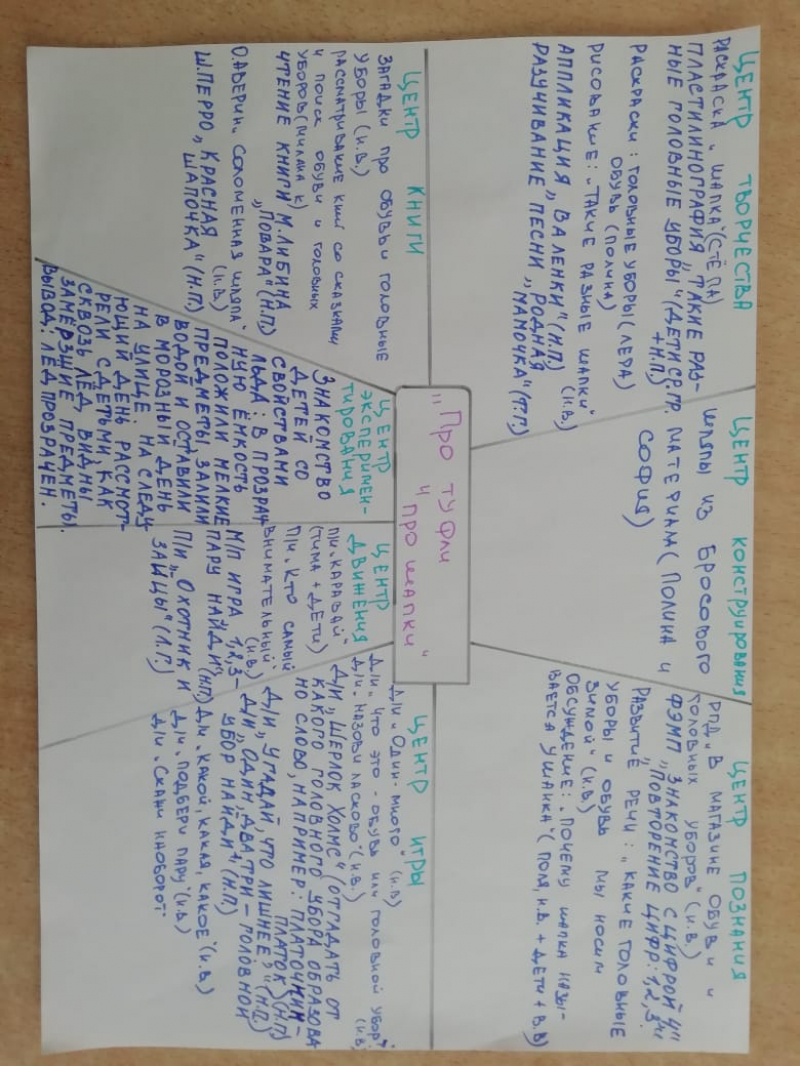 ЦЕНТР ТВОРЧЕСТВА
РАСКРАСКА „ШАПКА" (СТЁПА)
ПЛАСТИЛИНОГРАФИЯ „ТАКИЕ РАЗ-
НЫЕ ГОЛОВНЫЕ УБОРЫ" (ДЕТИ СР. ГР.
+ Н.П)
РАСКРАСКИ: ГОЛОВНЫЕ УБОРЫ (ЛЕРА)
ОБУВЬ (ПОЛИНА)
РИСОВАНИЕ: „ТАКИЕ РАЗНЫЕ ШАПКИ"
(Н.В.)
АППЛИКАЦИЯ „ВАЛЕНКИ" (Н.П)
РАЗУЧИВАНИЕ ПЕСНИ „РОДНАЯ
МАМОЧКА" (Т.Г.)
ЦЕНТР КОНСТРУИРОВАНИЯ
ШЛЯПЫ ИЗ БРОСОВОГО
МАТЕРИАЛА (ПОЛИНА И
СОФИЯ)
ЦЕНТР ПОЗНАНИЯ
РПД „В МАГАЗИНЕ ОБУВИ И
ГОЛОВНЫХ УБОРОВ" (Н.В.)
ФЭМП „ЗНАКОМСТВО С ЦИФРОЙ 4"
„ПОВТОРЕНИЕ ЦИФР: 1, 2, 3"
РАЗВИТИЕ РЕЧИ: „КАКИЕ ГОЛОВНЫЕ
УБОРЫ И ОБУВЬ МЫ НОСИМ
ЗИМОЙ" (Н.В.)
ОБСУЖДЕНИЕ: „ПОЧЕМУ ШАПКА НАЗЫ-
ВАЕТСЯ УШАНКА" (ПОЛЯ, Н.В. + ДЕТИ + В.В)
„ПРО ТУФЛИ
И
ПРО ШАПКИ"
ЦЕНТР КНИГИ
ЗАГАДКИ ПРО ОБУВЬ И ГОЛОВНЫЕ
УБОРЫ (Н.В.)
РАССМАТРИВАНИЕ КНИГ СО СКАЗКАМИ
И ПОИСК ОБУВИ И ГОЛОВНЫХ
УБОРОВ (МИЛАНА К)
ЧТЕНИЕ КНИГИ М. ЛИБИНА
„ПОВАРА" (Н.П)
О. АВЕРИН „СОЛОМЕННАЯ ШЛЯПА"
(Н.В.)
Ш. ПЕРРО „КРАСНАЯ
ШАПОЧКА" (Н.П)
ЦЕНТР
ЭКСПЕРИМЕН-
ТИРОВАНИЯ
ЗНАКОМСТВО
ДЕТЕЙ СО
СВОЙСТВАМИ
ЛЬДА: В ПРОЗРАЧ
НУЮ ЁМКОСТЬ
ПОЛОЖИЛИ МЕЛКИЕ
ПРЕДМЕТЫ, ЗАЛИЛИ
ВОДОЙ И ОСТАВИЛИ
В МОРОЗНЫЙ ДЕНЬ
НА УЛИЦЕ. НА СЛЕДУ
ЮЩИЙ ДЕНЬ РАССМОТ-
РЕЛИ С ДЕТЬМИ, КАК
СКВОЗЬ ЛЁД ВИДНЫ
ЗАМЁРЗШИЕ ПРЕДМЕТЫ.
ВЫВОД: ЛЁД ПРОЗРАЧЕН.
ЦЕНТР
ДВИЖЕНИЯ
П/И „КАРАВАЙ"
(ТИМА + ДЕТИ)
П/И „КТО САМЫЙ
ВНИМАТЕЛЬНЫЙ"
(Н.В.)
М/П ИГРА „1, 2, 3 –
ПАРУ НАЙДИ" (Н.П)
П/И „ОХОТНИК И
ЗАЙЦЫ" (Л.Г.)
ЦЕНТР ИГРЫ
Д/И „ОДИН-МНОГО" (Н.В)
Д/И „ЧТО ЭТО - ОБУВЬ ИЛИ ГОЛОВНОЙ УБОР"
(Н.В)
Д/И „НАЗОВИ ЛАСКОВО" (Н.В.)
Д/И „ШЕРЛОК ХОЛМС" (ОТГАДАТЬ ОТ
КАКОГО ГОЛОВНОГО УБОРА ОБРАЗОВА
НО СЛОВО, НАПРИМЕР: ПЛАТОЧКИ –
ПЛАТОК) (Н.П)
Д/И „УГАДАЙ, ЧТО ЛИШНЕЕ?" (Н.П)
Д/И „ОДИН, ДВА, ТРИ – ГОЛОВНОЙ
УБОР НАЙДИ" (Н.П)
Д/И „КАКОЙ, КАКАЯ, КАКОЕ" (Н.В)
Д/И „ПОДБЕРИ ПАРУ" (Н.В)
Д/И „СКАЖИ НАОБОРОТ